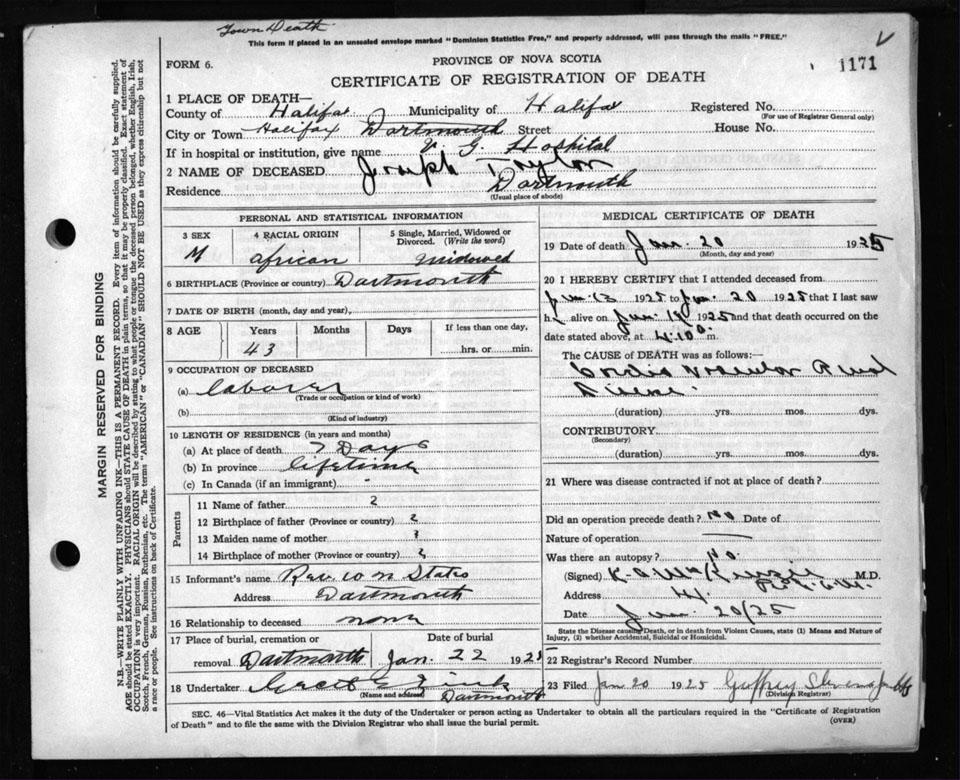 Town Death
This form if placed in an unsealed envelope marked "Dominion Statistics Free," and properly addressed, will pass through the mails "FREE."
FORM 6.
PROVINCE OF NOVA SCOTIA
1171
CERTIFICATE OF REGISTRATION OF DEATH
1 PLACE OF DEATH—
County of Halifax Municipality of Halifax Registered No.
(For use of Registrar General only)
City or Town Halifax Dartmouth Street House No.
If in hospital or institution, give name V. G. Hospital
2 NAME OF DECEASED Joseph Taylor
Residence Dartmouth
(Usual place of abode)
PERSONAL AND STATISTICAL INFORMATION
3 SEX
M
4 RACIAL ORIGIN
African
5 Single, Married, Widowed or Divorced. (Write the word)
Widowed
6 BIRTHPLACE (Province or country) Dartmouth
7 DATE OF BIRTH (month, day and year)
8 AGE Years Months Days If less than one day,
43 hrs. or min.
9 OCCUPATION OF DECEASED
(a) laborer
(Trade or occupation or kind of work)
(b)
(Kind of industry)
10 LENGTH OF RESIDENCE (in years and months)
(a) At place of death 7 Days
(b) In province lifetime
(c) In Canada (if an immigrant) -
Parents
11 Name of father ?
12 Birthplace of father (Province or country) ?
13 Maiden name of mother ?
14 Birthplace of mother (Province or country) ?
15 Informant's name Rev. W N States
Address Dartmouth
16 Relationship to deceased none
17 Place of burial, cremation or removal Dartmouth
Date of burial
Jan. 22 1925
18 Undertaker
(Name and address)
Dartmouth
MEDICAL CERTIFICATE OF DEATH
19 Date of death Jan. 20 1925
(Month, day and year)
20 I HEREBY CERTIFY that I attended deceased from
Jan 13 1925 to Jan. 20 1925 that I last saw
h alive on Jan. 19 1925 and that death occurred on
date stated above, at 4.100 m.
The CAUSE of DEATH was as follows:—
Cardio Vascular Renal
Disease
(duration) yrs. mos. dys.
CONTRIBUTORY
(Secondary)
(duration) yrs. mos. dys.
21 Where was disease contracted if not at place of death?
Did an operation precede death? No Date of
Nature of operation —
Was there an autopsy? No.
(Signed) M.D.
Address
Date Jan. 20/25
State the Disease causing Death, or in death from Violent Causes, state (1) Means and Nature of
Injury, (2) whether Accidental, Suicidal or Homicidal.
22 Registrar's Record Number
23 Filed Jan 20 1925 Geffrey Stevens
(Division Registrar)
SEC. 46—Vital Statistics Act makes it the duty of the Undertaker or person acting as Undertaker to obtain all the particulars required in the "Certificate of Registration
of Death" and to file the same with the Division Registrar who shall issue the burial permit.
(OVER)
MARGIN RESERVED FOR BINDING
N.B.—WRITE PLAINLY WITH UNFADING INK—THIS IS A PERMANENT RECORD. Every item of information should be carefully supplied.
AGE should be stated EXACTLY. PHYSICIANS should STATE CAUSE OF DEATH in plain terms, so that it may be properly classified. Exact statement of
OCCUPATION is very important. RACIAL ORIGIN will be described by stating to what people or tongue the deceased person belonged, whether English, Irish,
Scotch, French, German, Russian, Ruthenian, etc. The terms "AMERICAN" or "CANADIAN" SHOULD NOT BE USED as they express citizenship but not
a race or people. See instructions on back of Certificate.